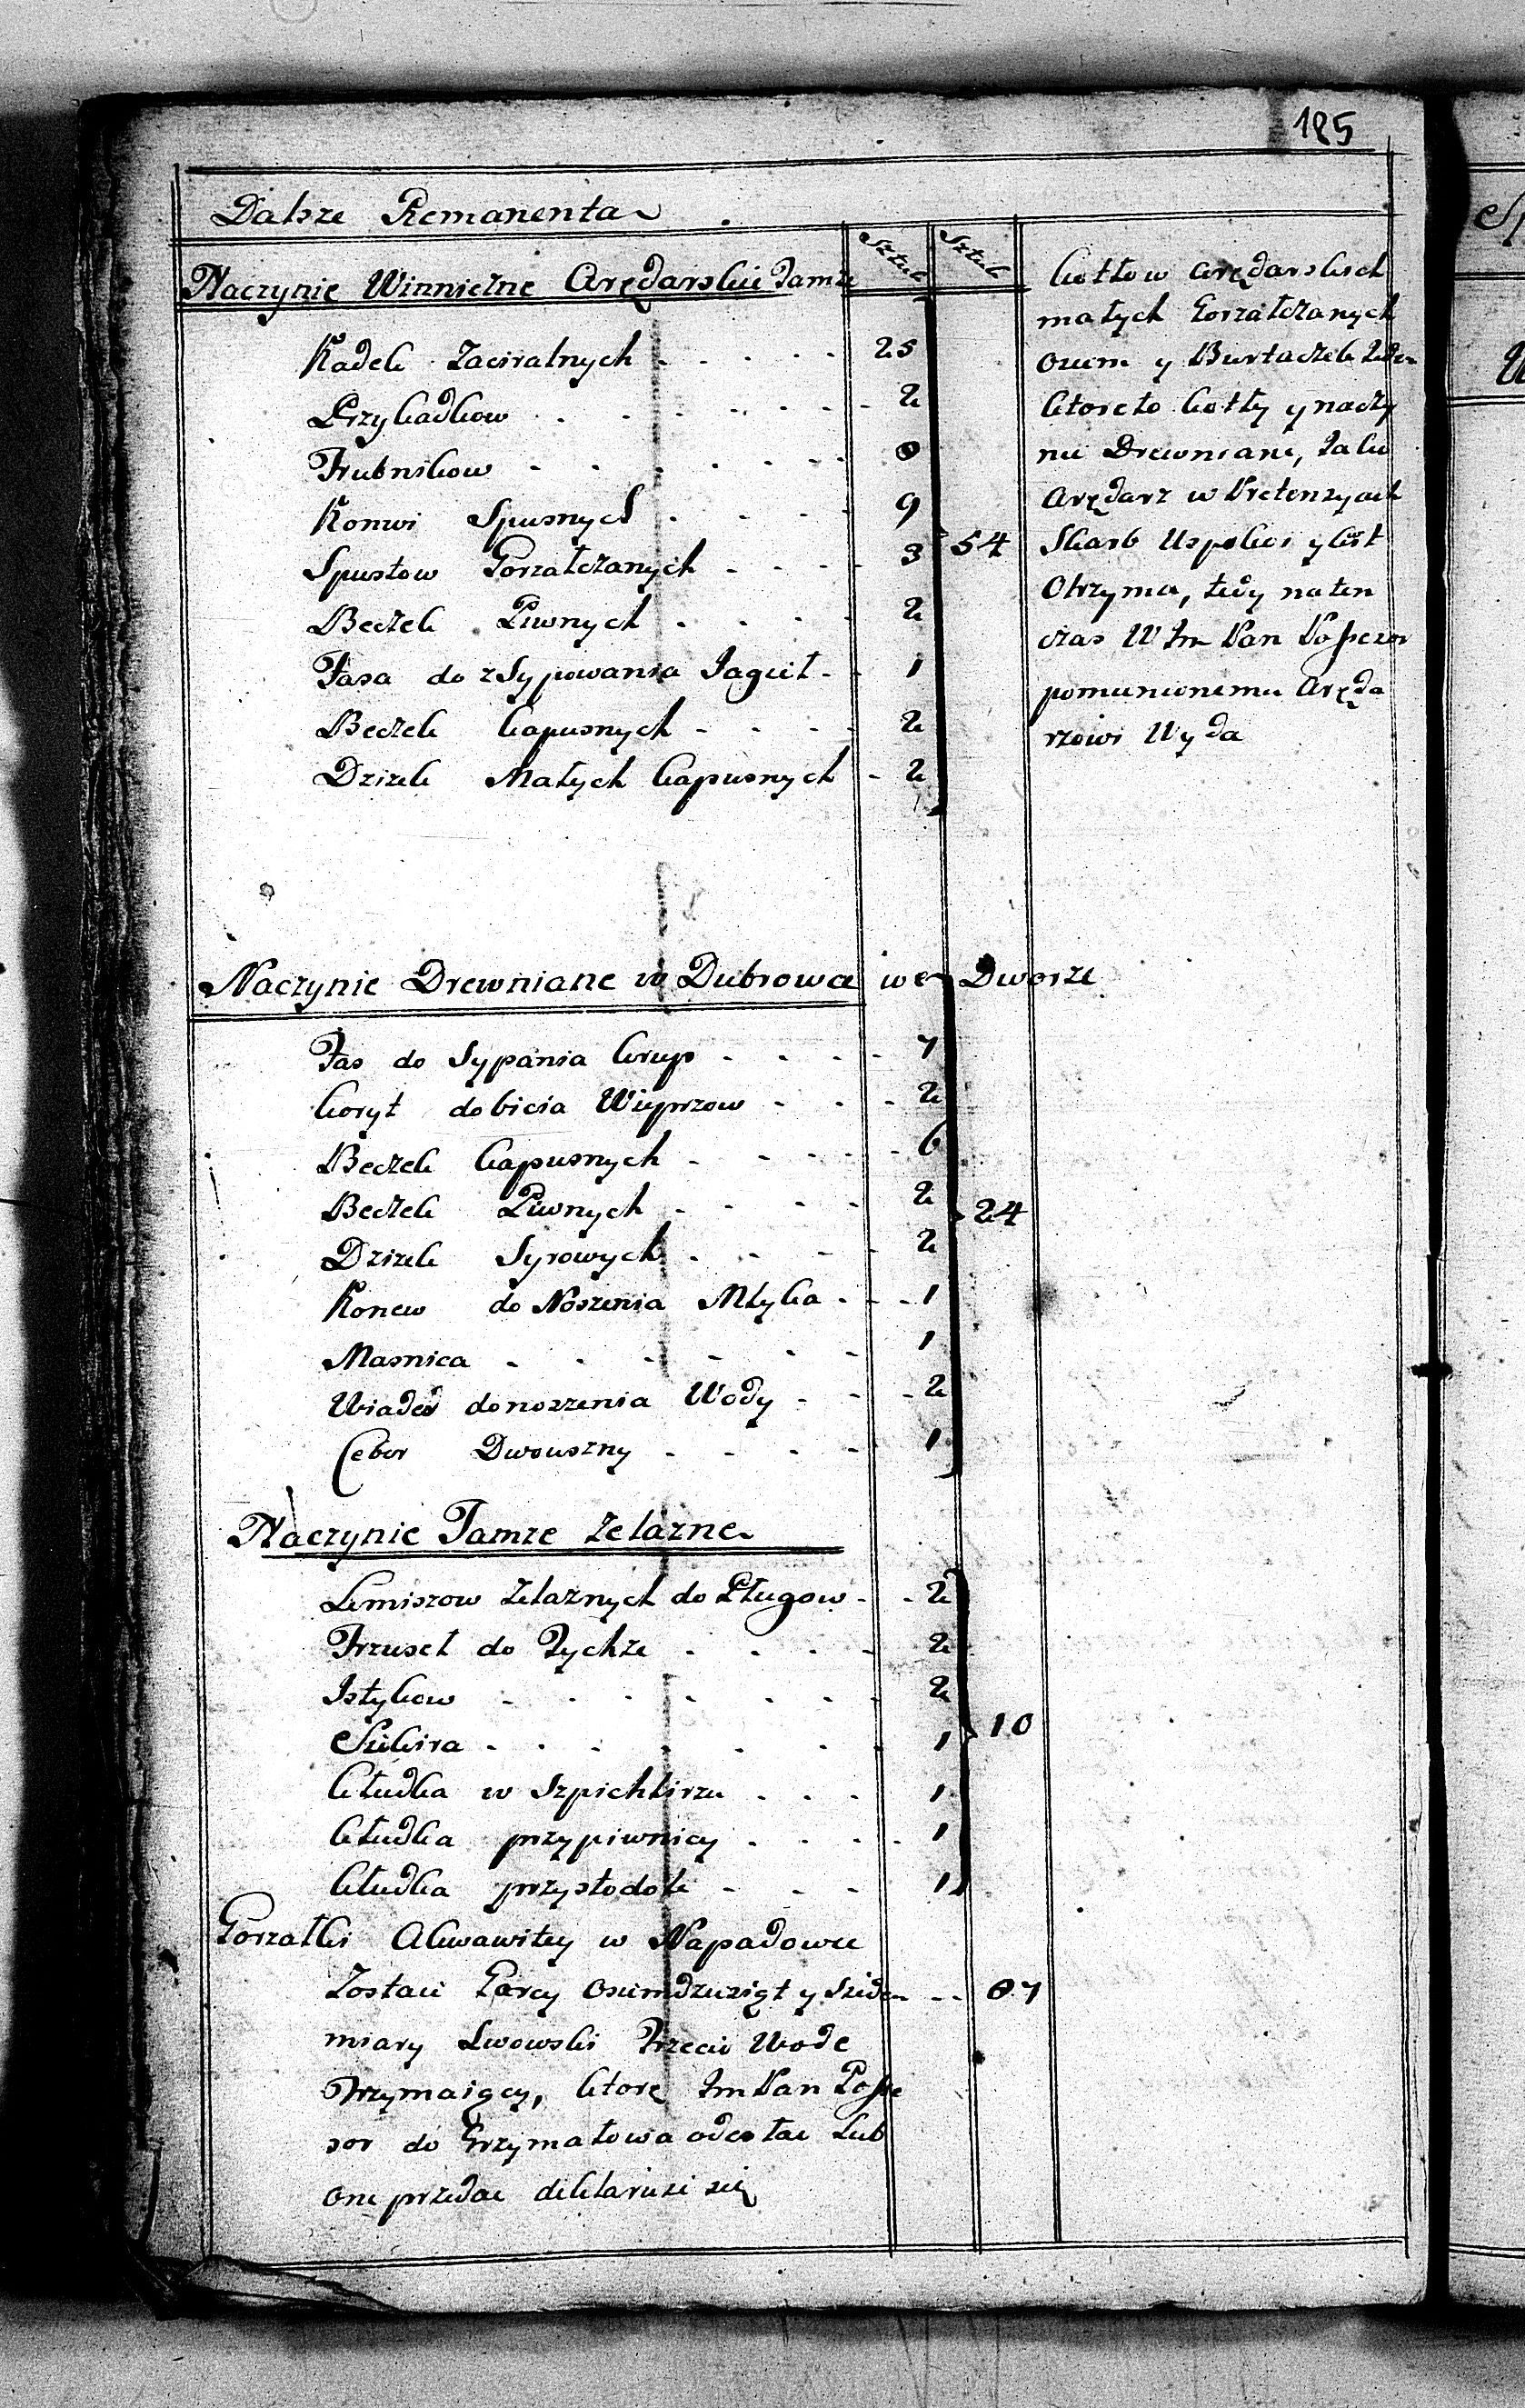 185
Dalsze Remanenta
Sztuk Sztuk
Naczynie Winniczne Arędarskie Tamże
Kadek Zacieralnych - - - - - 25
Przykadkow - - - - - - - 2
Trubnikow - - - - - - - 8
Konwi Spusnych - - - - 9
Spustow Gorzałczanych - - - - 3 54
Beczek Piwnych - - - - 2
Fasa do zSypowania Jagieł - - 1
Beczek kapusnych - - - - 2
Dzizek Małych kapusnych - 2
Kotłow arędarskich
małych Gorzałczanych
osiem y Burtaczek Jeden
ktoreto kotły y naczy
nie Drewniane, Jak
arędarz w Pretensyach
Skarb Uspokoi y kwit
Otrzyma, tedy na ten
czas WIm Pan Possessor
pomienionemu Aręda
rzowi Wyda
Naczynie Drewniane w Dubrowce we Dworze
Fas do Sypania krup - - - - 7
koryt do bicia Wieprzow - - - 2
Beczek kapusnych - - - - 6
Beczek Piwnych - - - - 2 24
Dzizek Syrowych - - - - 2
Konew do Noszenia Mlyka - - - 1
Masnica - - - - - - 1
Wiader do noszenia Wody - - - 2
Ceber Dwouszny - - - - 1
Naczynie Tamże Żelazne
Lemiszow Żelaznych do Pługow - - 2
Trzuseł do Tychże - - - - 2
Istykow - - - - - - - 2
Siekira - - - - - - - 1 10
kłudka w Szpichlirzu - - - 1
kłudka przy piwnicy - - - - 1
kłudka przy stodole - - - 1
Gorzałki Akwawitey w Napadowce
Zostaie Garcy osiemdziesiąt y Siedm - - 87
miary Lwowski Trzecio Wode
Trzymaiącey, ktorę Im Pan Posse
sor do Grzymałowa odesłac Lub
one przedac deklaruie się